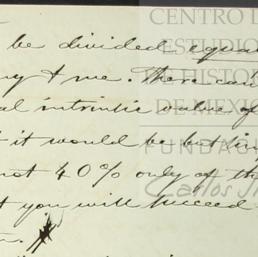 be divided equa
& me. There can
al intrintic value of
it would be but
not 40% only of th
t you will succeed
CENTRO D
ESTUDIO
DE HISTOR
DE MEXIC
FUNDAC
Carlos S